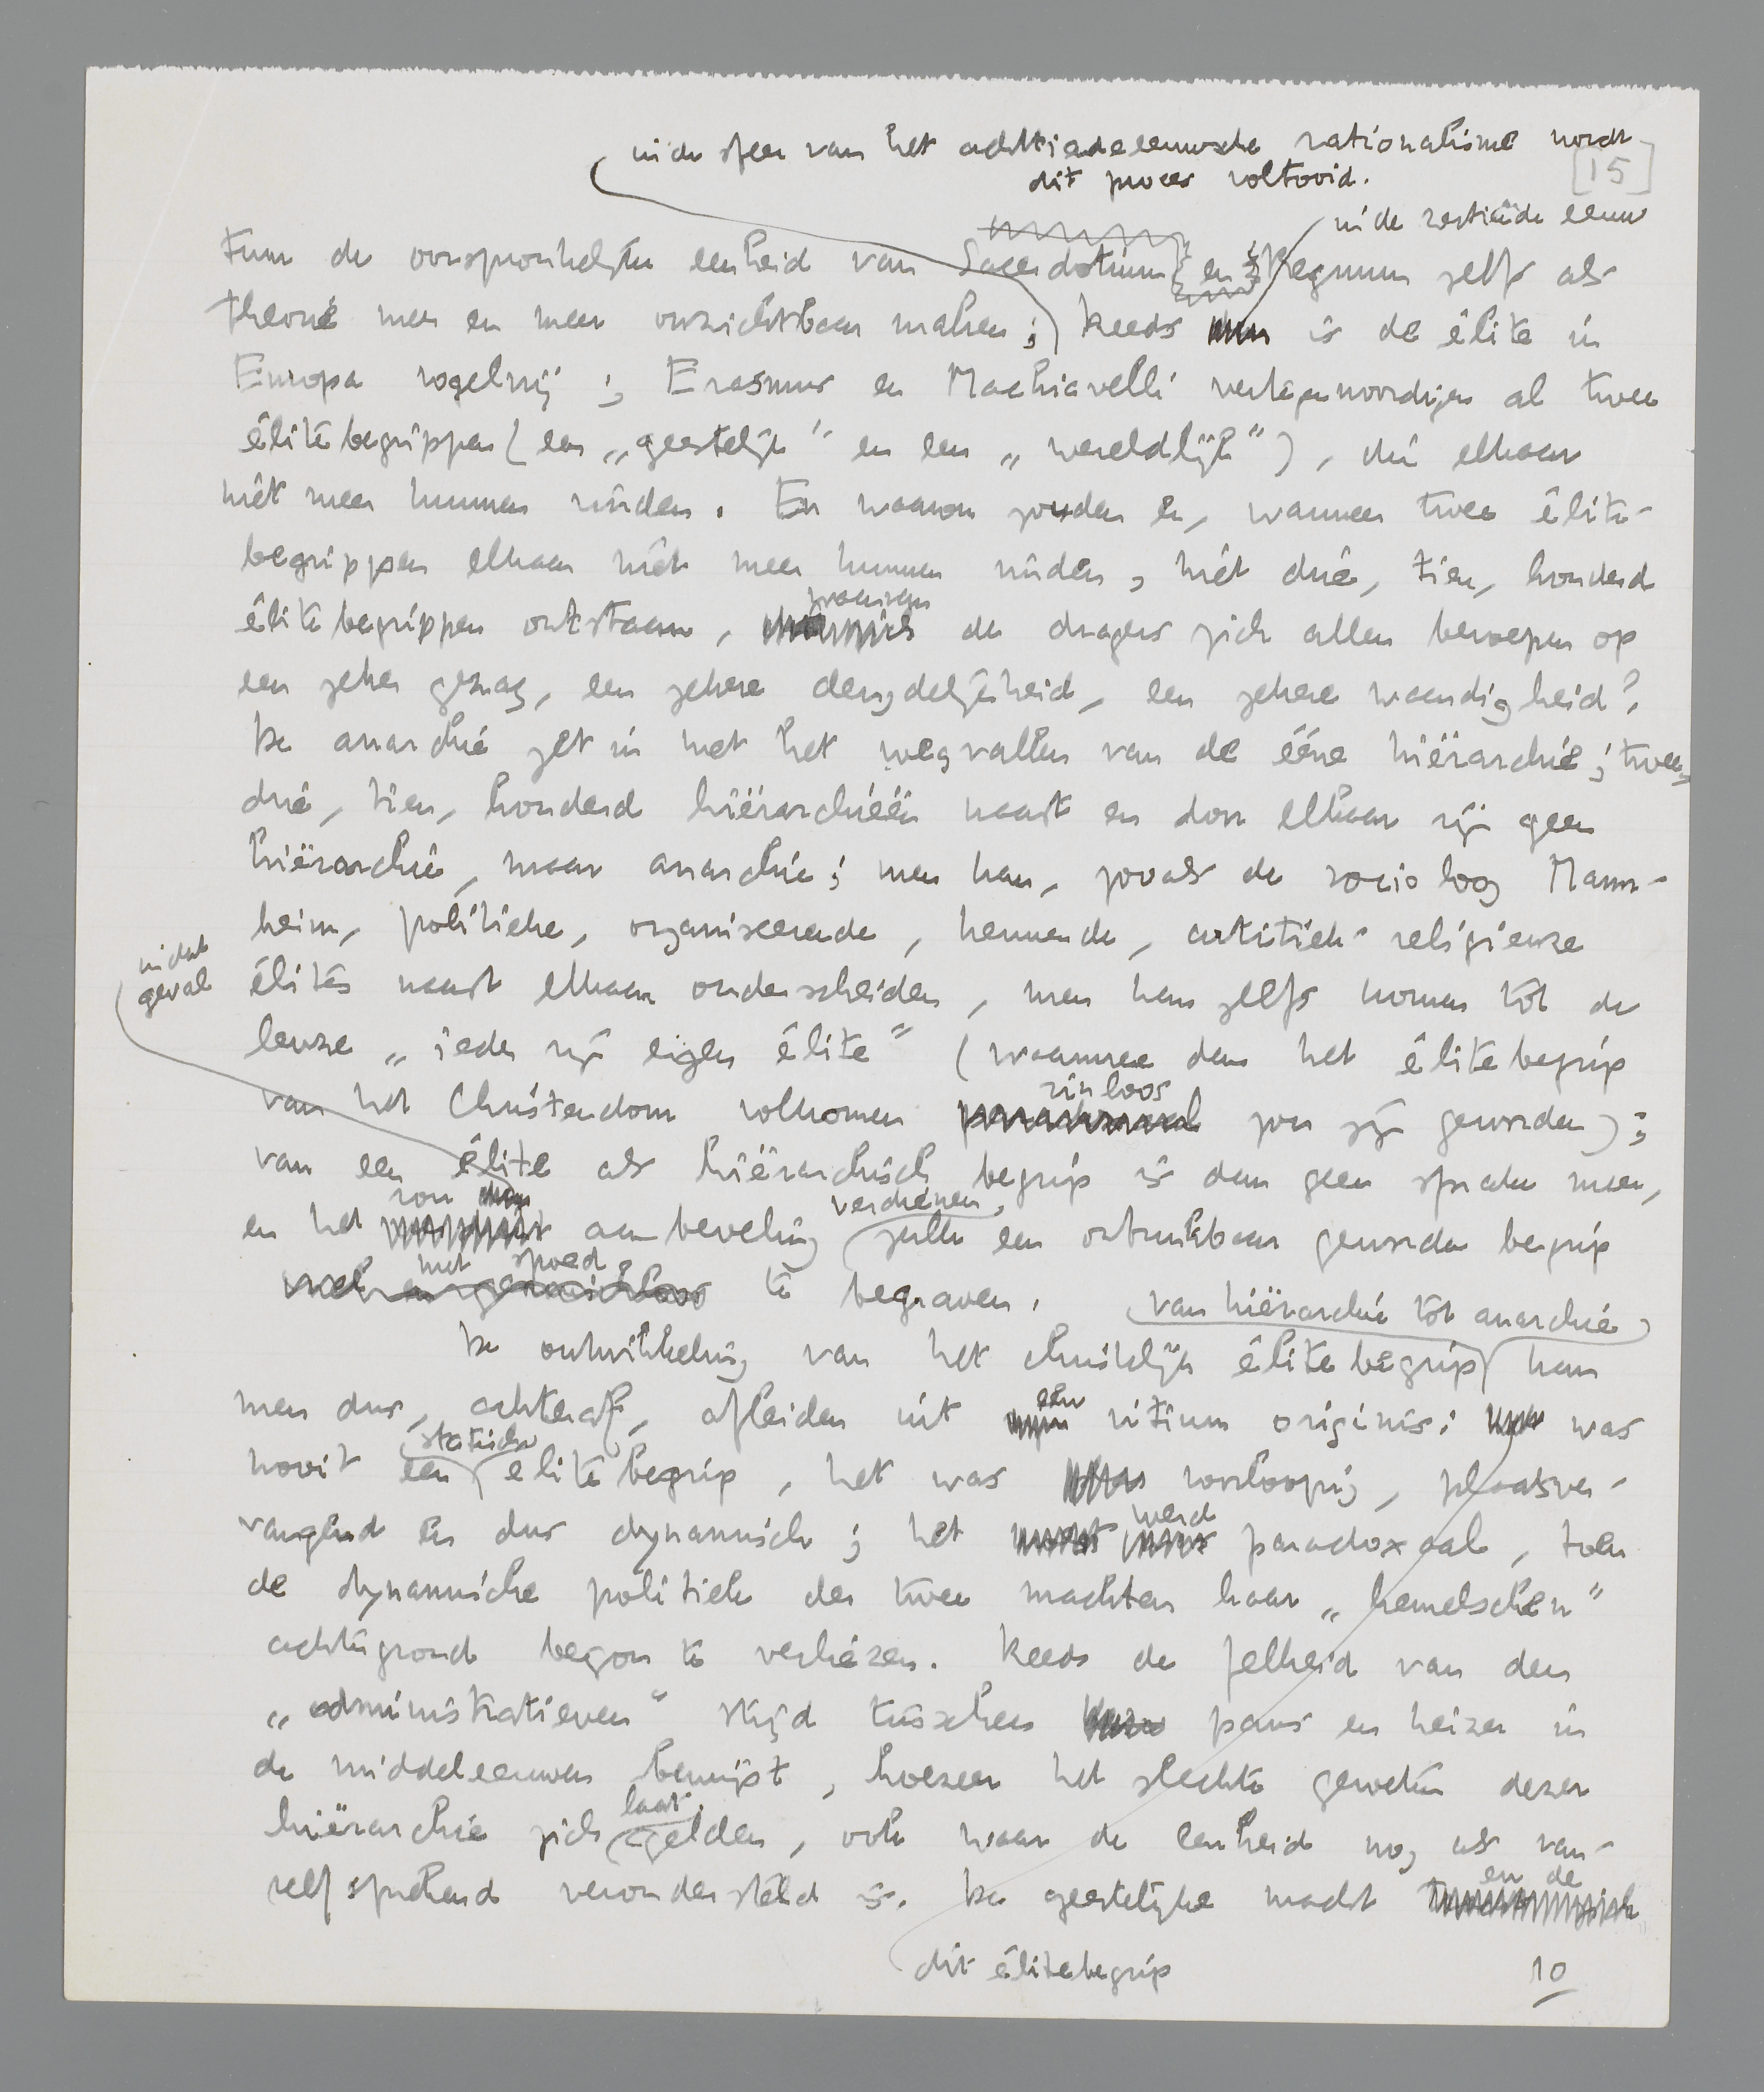 in de sfeer van het achttiendeeeuwsche rationalisme wordt
dit proces voltooid.
[15]
in de zestiende eeuw
tum de oorspronkelijke eenheid van Sacerdotium en Regnum zelfs als
theorie meer en meer onzichtbaar maken; Reeds is de élite in
Europa vogelvrij; Erasmus en Machiavelli vertegenwoordigen al twee
élitebegrippen (een „geestelijk” en een „wereldlijk”), die elkaar
niet meer kunnen vinden. En waarom zouden er, wanneer twee élite-
begrippen elkaar niet meer kunnen vinden, niet drie, tien, honderd
waarvan
élitebegrippen ontstaan, de dragers zich allen beroepen op
een zeker gezag, een zekere deugdelijkheid, een zekere waardigheid?
De anarchie zet in met het wegvallen van de ééne hiërarchie; twee,
drie, tien, honderd hiërarchieën naast en door elkaar zijn geen
hiërarchie, maar anarchie; men kan, zooals de socioloog Mann-
heim, politieke, organiseerende, kennende, artistiek-religieuze
in dat
geval
élites naast elkaar onderscheiden, men kan zelfs komen tot de
leuze „ieder zijn eigen élite” (waarmee dan het élitebegrip
zinloos
van het Christendom volkomen zou zijn geworden);
van een élite als hiërarchisch begrip is dan geen sprake meer,
zou verdienen
en het aanbeveling zulk een onbruikbaar geworden begrip
met spoed
te begraven.
van hiërarchie tot anarchie
De ontwikkeling van het christelijk élitebegrip kan
een
men dus, achteraf, afleiden uit vitium originis: was
statisch
nooit een elitebegrip, het was voorloopig, plaatsver-
werd
vangend en dus dynamisch; het paradoxaal, toen
de dynamische politiek der twee machten haar „hemelschen”
achtergrond begon te verliezen. Reeds de felheid van den
„administratieven” strijd tusschen paus en keizer in
de middeleeuwen bewijst, hoezeer het slechte geweten dezer
laat
hiërarchie zich gelden, ook waar de eenheid nog als van-
zelfsprekend verondersteld is. De geestelijke macht
en de
dit élitebegrip
10